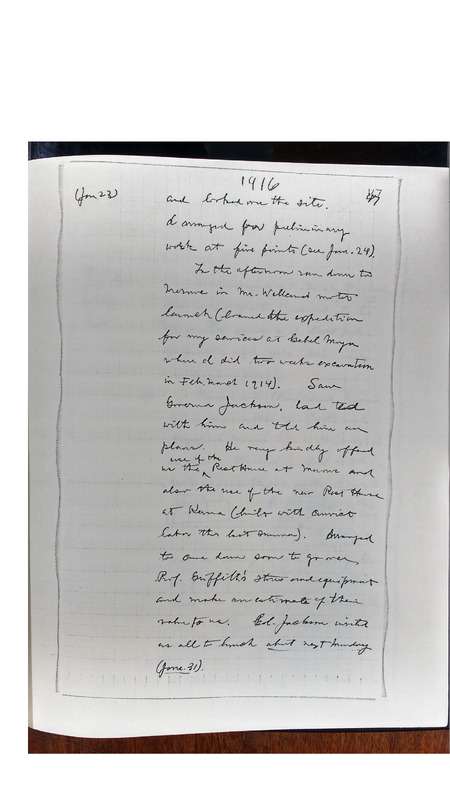 1916
(Jan 23) and looked over the site. 47
I arranged for preliminary
work at five points (see Jan. 24).
In the afternoon ran down to
Merowe in Mr. Wellcome's motor
launch (loaned the expedition
for my services at Gebel Moya
where I did two weeks excavation
in Feb. March 1914). Saw
Governor Jackson, had tea
with him and told him our
plans. He very kindly offered
us the use of the Rest House at Merowe and
also the use of the new Rest House
at Kerma (built with convict
labor this last summer). Arranged
to come down soon to go over
Prof. Griffith's stores and equipment
and make an estimate of their
value to us. Col. Jackson invites
us all to lunch next Monday
(Jan. 31).